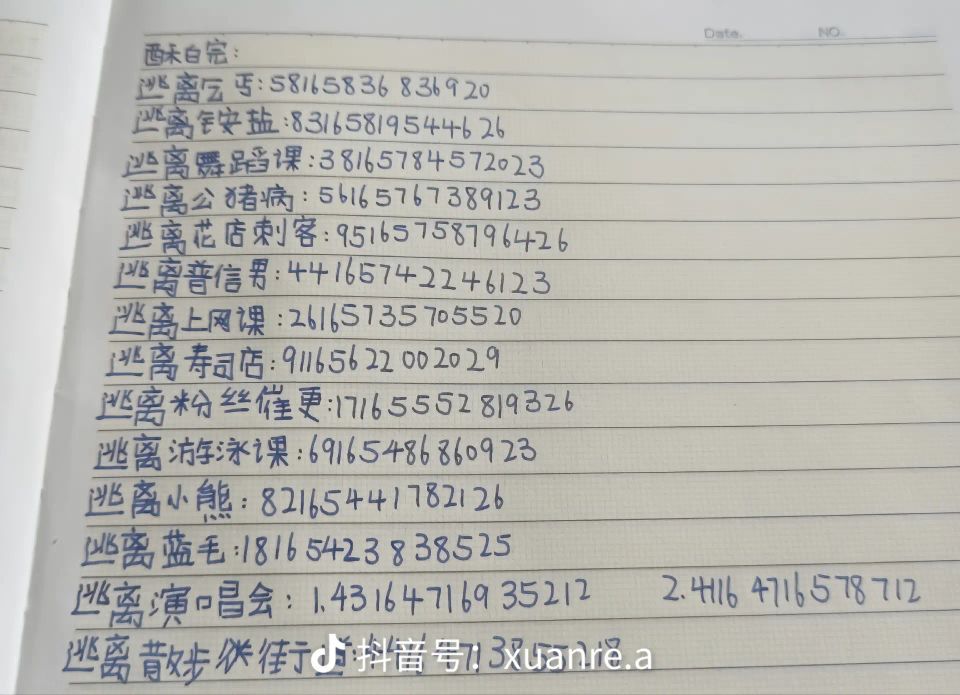 Date. NO.
酥白完:
逃离乞丐:58165836836920
逃离铵盐:83165819544626
逃离舞蹈课:38165784572023
逃离公猪病:56165767389123
逃离花店刺客:95165758796426
逃离普信男:44165742246123
逃离上网课:26165735705520
逃离寿司店:91165622002029
逃离粉丝催更:17165552819326
逃离游泳课:69165486860923
逃离小熊:82165441782126
逃离蓝毛:18165423838525
逃离演唱会:1.43164716935212 2.41164716578712
逃离散步
抖音号:xuanre.a